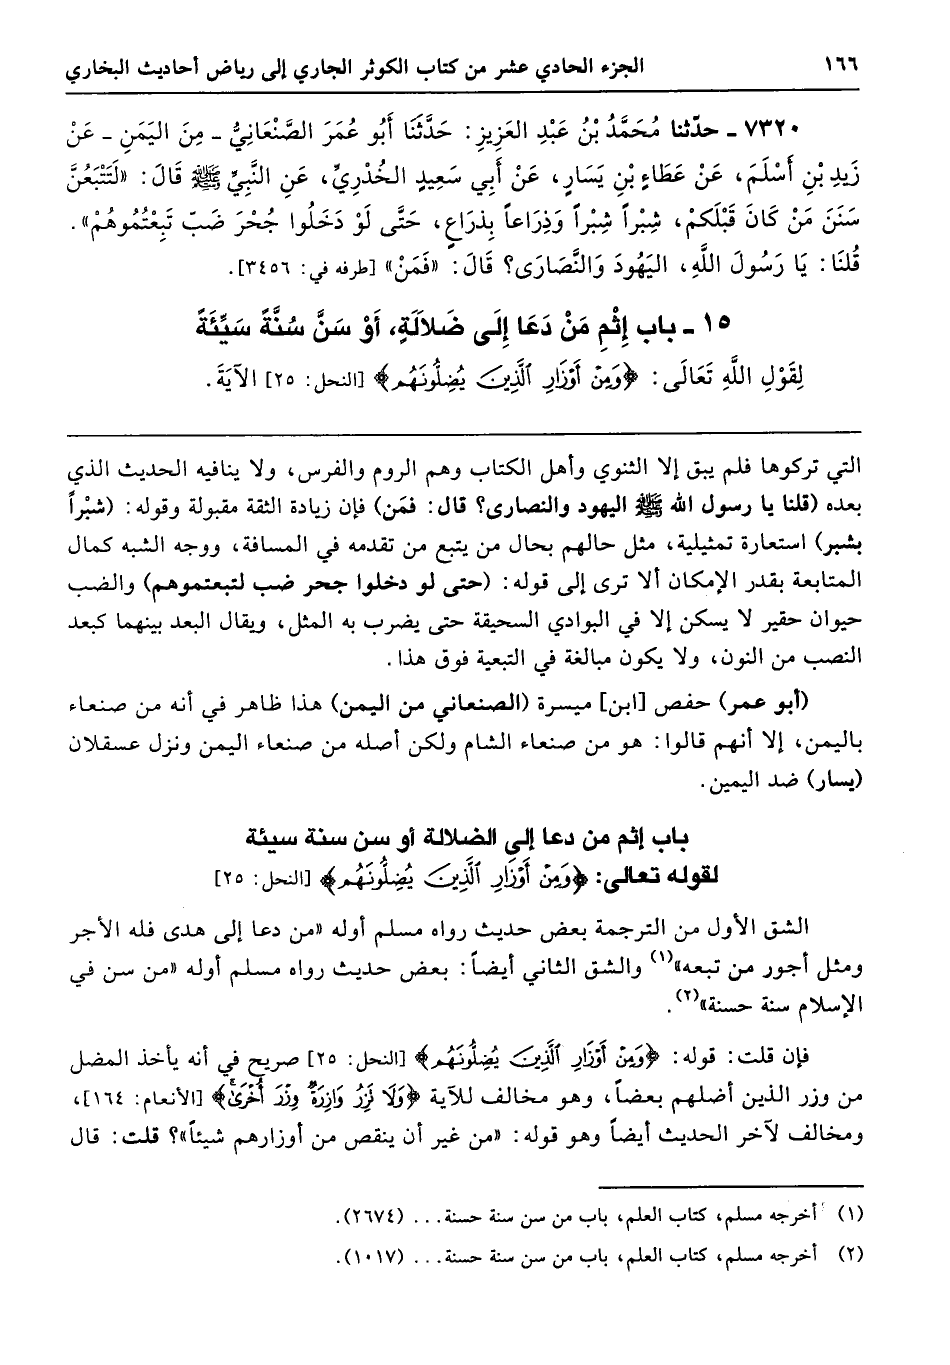 ١٦٦ الجزء الحادي عشر من كتاب الكوثر الجاري إلى رياض أحاديث البخاري
٧٣٢٠ ـ حدّثنا مُحَمَّدُ بْنُ عَبْدِ العَزِيزِ: حَدَّثَنَا أَبُو عُمَرَ الصَّنْعَانِيُّ ـ مِنَ اليَمَنِ ـ عَنْ
زَيدِ بْنِ أَسْلَمَ، عَنْ عَطَاءِ بْنِ يَسَارٍ، عَنْ أَبِي سَعِيدٍ الخُدْرِيِّ، عَنِ النَّبِيِّ ﷺ قَالَ: «لَتَتْبَعُنَّ
سَنَنَ مَنْ كَانَ قَبْلَكمْ، شِبْراً شِبْراً وَذِرَاعاً بِذرَاعٍ، حَتَّى لَوْ دَخَلُوا جُحْرَ ضَبّ تَبِعْتُمُوهُمْ».
قُلنَا: يَا رَسُولَ اللَّهِ، اليَهُودَ وَالنَّصَارَى؟ قَالَ: «فَمَنْ» [طرفه في: ٣٤٥٦].
١٥ ـ باب إِثْمِ مَنْ دَعَا إِلَى ضَلاَلَةٍ، أَوْ سَنَّ سُنَّةً سَيِّئَةً
لِقَوْلِ اللَّهِ تَعَالَى: ﴿وَمِنْ أَوْزَارِ ٱلَّذِينَ يُضِلُّونَهُم﴾ [النحل: ٢٥] الآيَةَ.
التي تركوها فلم يبق إلا الثنوي وأهل الكتاب وهم الروم والفرس، ولا ينافيه الحديث الذي
بعده (قلنا يا رسول الله ﷺ اليهود والنصارى؟ قال: فمَن) فإن زيادة الثقة مقبولة وقوله: (شبْراً
بشبر) استعارة تمثيلية، مثل حالهم بحال من يتبع من تقدمه في المسافة، ووجه الشبه كمال
المتابعة بقدر الإمكان ألا ترى إلى قوله: (حتى لو دخلوا جحر ضب لتبعتموهم) والضب
حيوان حقير لا يسكن إلا في البوادي السحيقة حتى يضرب به المثل، ويقال البعد بينهما كبعد
النصب من النون، ولا يكون مبالغة في التبعية فوق هذا.
(أبو عمر) حفص [ابن] ميسرة (الصنعاني من اليمن) هذا ظاهر في أنه من صنعاء
باليمن، إلا أنهم قالوا: هو من صنعاء الشام ولكن أصله من صنعاء اليمن ونزل عسقلان
(يسار) ضد اليمين.
باب إثم من دعا إلى الضلالة أو سن سنة سيئة
لقوله تعالى: ﴿وَمِنْ أَوْزَارِ ٱلَّذِينَ يُضِلُّونَهُم﴾ [النحل: ٢٥]
الشق الأول من الترجمة بعض حديث رواه مسلم أوله «من دعا إلى هدى فله الأجر
ومثل أجور من تبعه»(١) والشق الثاني أيضاً: بعض حديث رواه مسلم أوله «من سن في
الإسلام سنة حسنة»(٢).
فإن قلت: قوله: ﴿وَمِنْ أَوْزَارِ ٱلَّذِينَ يُضِلُّونَهُم﴾ [النحل: ٢٥] صريح في أنه يأخذ المضل
من وزر الذين أضلهم بعضاً، وهو مخالف للآية ﴿وَلَا تَزِرُ وَازِرَةٌ وِزْرَ أُخْرَىٰ﴾ [الأنعام: ١٦٤]،
ومخالف لآخر الحديث أيضاً وهو قوله: «من غير أن ينقص من أوزارهم شيئاً»؟ قلت: قال
(١) أخرجه مسلم، كتاب العلم، باب من سن سنة حسنة... (٢٦٧٤).
(٢) أخرجه مسلم، كتاب العلم، باب من سن سنة حسنة... (١٠١٧).